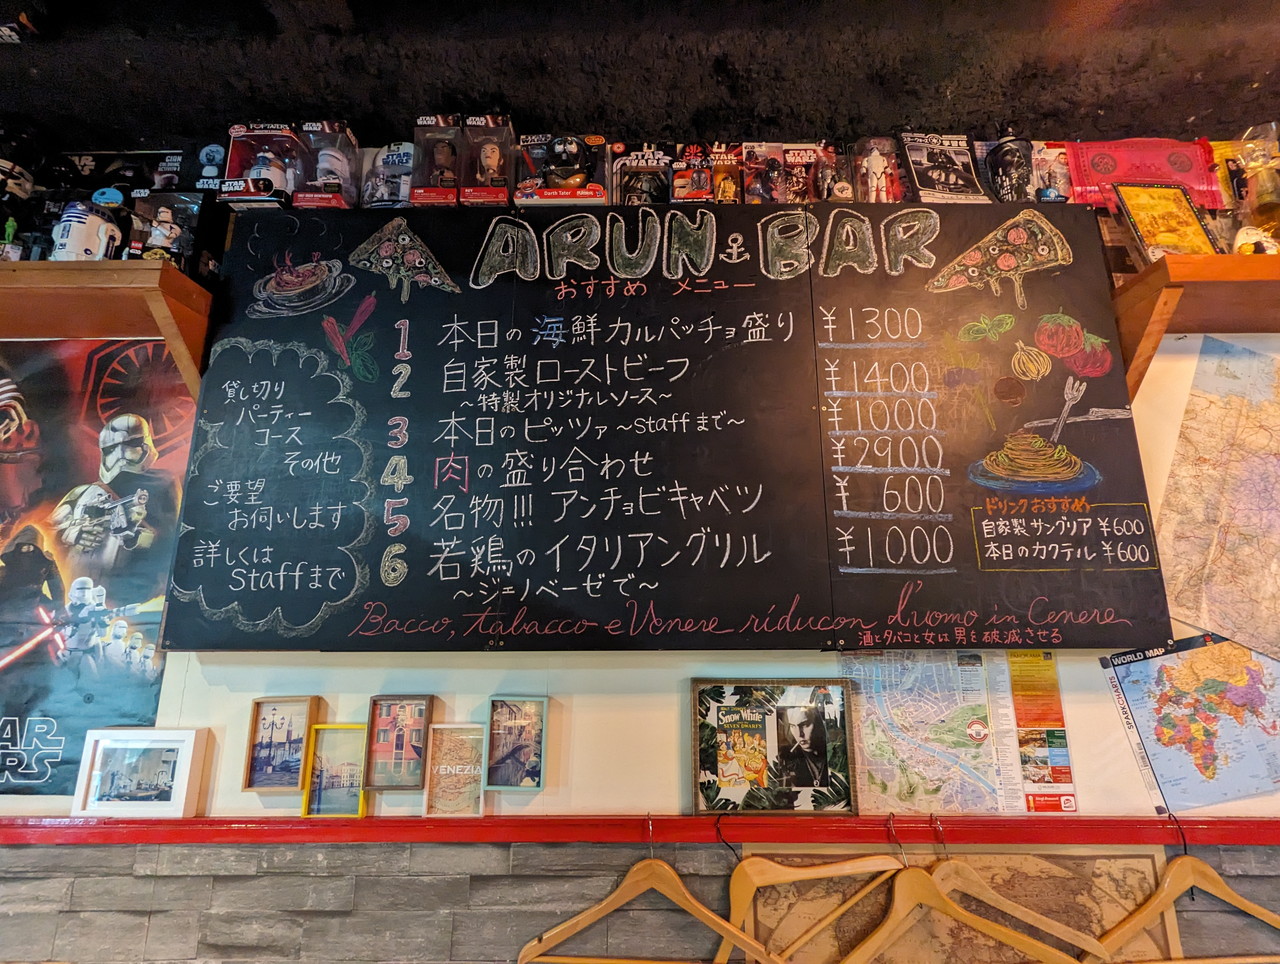 STAR WARS
STAR WARS
STAR WARS
Darth Tater
STAR WARS
ARUN BAR
おすすめ メニュー
1 本日の海鮮カルパッチョ盛り ¥1300
2 自家製ローストビーフ ¥1400
~特製オリジナルソース~
3 本日のピッツァ ~Staffまで~ ¥1000
4 肉の盛り合わせ ¥2900
5 名物!!! アンチョビキャベツ ¥600
6 若鶏のイタリアングリル ¥1000
~ジェノベーゼで~
貸し切り
パーティー
コース
その他
ご要望
お伺いします
詳しくは
Staffまで
ドリンクおすすめ
自家製サングリア ¥600
本日のカクテル ¥600
Bacco, tabacco e Venere riducon l'uomo in Cenere
酒とタバコと女は男を破滅させる
STAR
WARS
VENEZIA
Snow White
SEVEN DWARFS
WORLD MAP
SPARKCHARTS